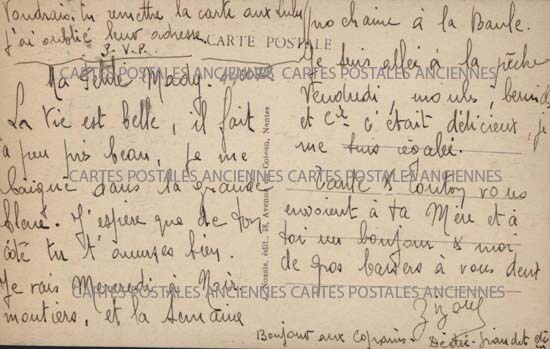 Voudrais-tu remettre la carte aux Lulu
j'ai oublié leur adresse.
3. V. P.
CARTE POSTALE
Ma Petite Mady.
La vie est belle, il fait
à peu près beau, je me
baigne dans la grande
bleue. J'espère que de ton
côté tu t'amuses bien.
Je vais Mercredi à Noir-
moutiers, et la semaine
prochaine à la Baule.
Je suis allée à la pêche
Vendredi, moules, bernic
et Cie c'était délicieux, je
me suis régalé.
Tante & Tonton vous
envoient à ta Mère et à
toi un bonjour & moi
de gros baisers à vous deux
Bonjour aux Copains.
édit., 18, Avenue du Coteau, Nantes
CARTES POSTALES ANCIENNES CARTES POSTALES ANCIENNES
CARTES POSTALES ANCIENNES CARTES POSTALES ANCIENNES
CARTES POSTALES ANCIENNES CARTES POSTALES ANCIENNES
CARTES POSTALES ANCIENNES CARTES POSTALES ANCIENNES